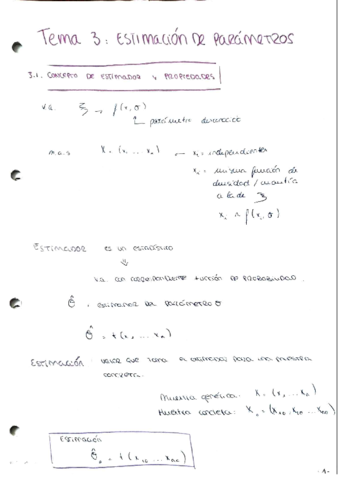 Tema 3: ESTIMACIÓN DE PARÁMETROS
3.1. CONCEPTO DE ESTIMADOR Y PROPIEDADES
v.a. ξ → f(x, σ)
parámetro desconocido
m.a.s X = (x₁ ... xₙ) → xᵢ = independientes
xᵢ = misma función de
densidad / cuantía
a la de ξ
xᵢ ~ f(xᵢ, σ)
ESTIMADOR es un estadístico
⇓
v.a. con su función de PROBABILIDAD.
θ̂ = ESTIMADOR DEL PARÁMETRO θ
θ̂ = t(x₁ ... xₙ)
ESTIMACIÓN: VALOR QUE TOMA EL ESTIMADOR PARA UNA MUESTRA
CONCRETA.
Muestra genérica: X = (x₁ ... xₙ)
Muestra concreta: X₀ = (x₁₀, x₂₀ ... xₙ₀)
ESTIMACIÓN
θ̂₀ = t(x₁₀ ... xₙ₀)
-1-